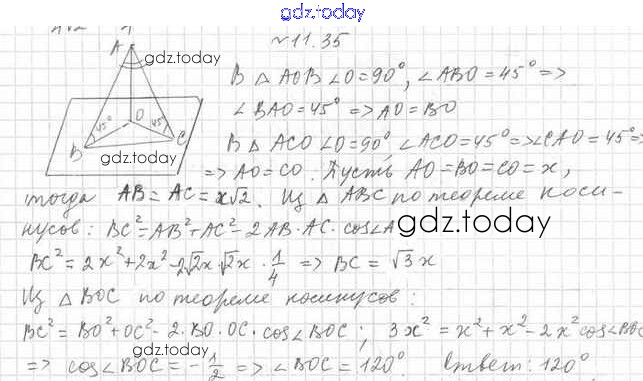 gdz.today
№11.35
A
gdz.today
В △AOB ∠O=90°, ∠ABO=45° =>
∠BAO=45° => AO=BO
O
45°
45°
B
C
gdz.today
В △ACO ∠O=90° ∠ACO=45° => ∠CAO=45° =>
=> AO=CO. Пусть AO=BO=CO=x,
тогда AB=AC=x√2. Из △ABC по теореме коси-
нусов: BC²=AB²+AC²-2AB·AC·cos∠A
gdz.today
BC²=2x²+2x²-2√2x·√2x·1/4 => BC=√3x
Из △BOC по теореме косинусов:
BC²=BO²+OC²-2·BO·OC·cos∠BOC; 3x²=x²+x²-2x²cos∠BOC
gdz.today
=> cos∠BOC=-1/2 => ∠BOC=120°. Ответ: 120°.